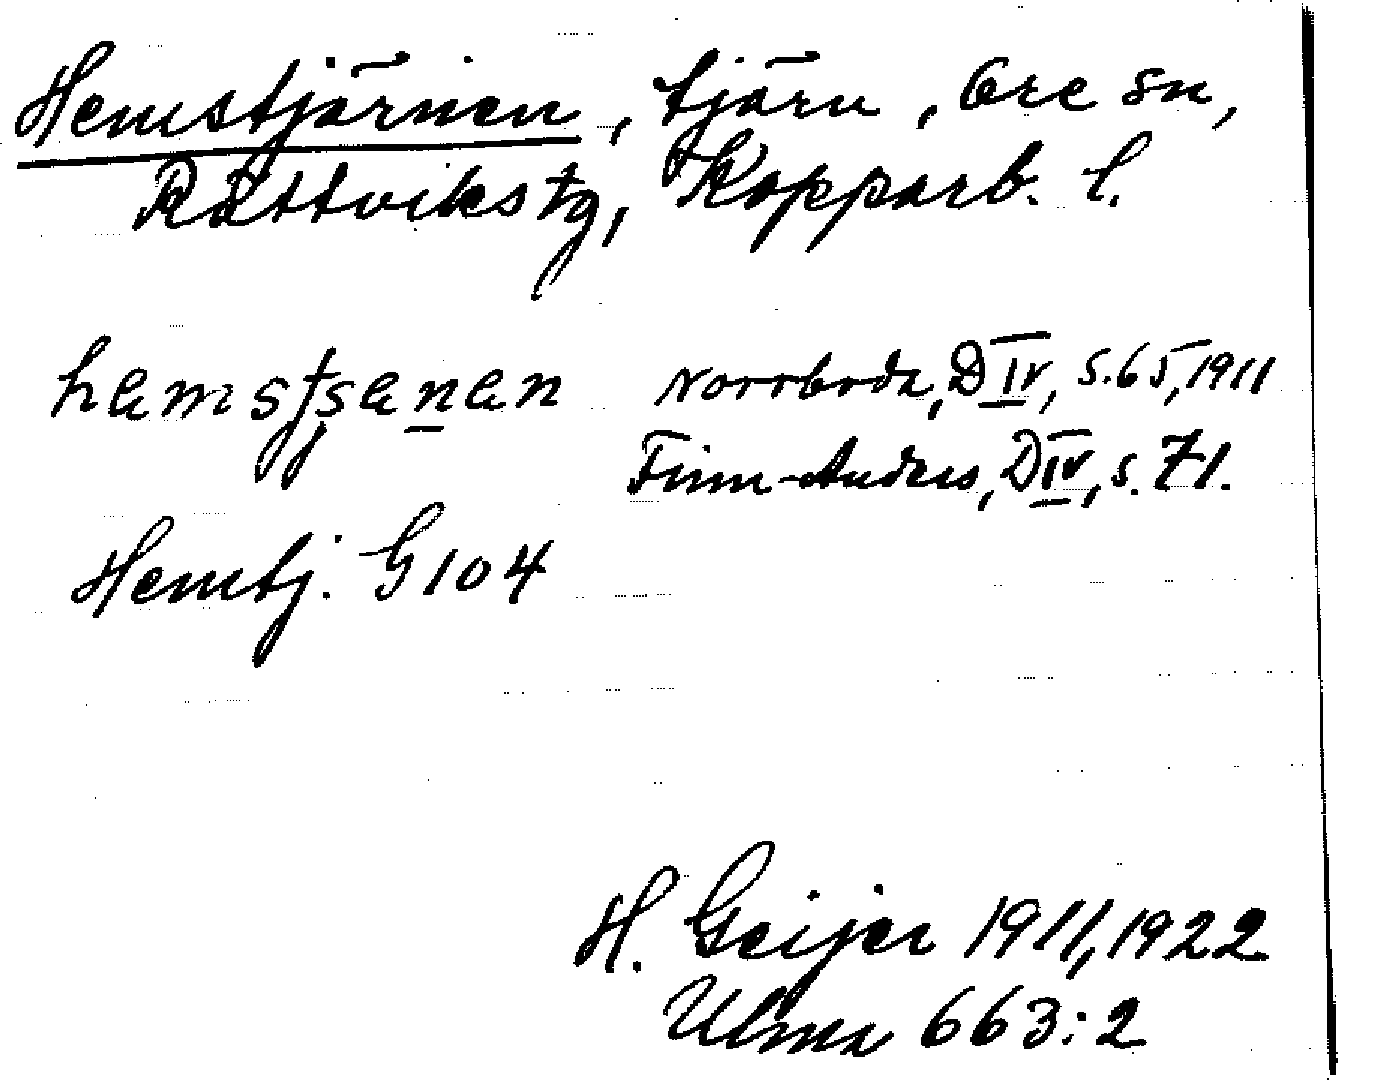 Hemstjärnen, tjärn, Ore sn,
Rättvikstg, Kopparb. l.
Norrboda, D IV, s. 65, 1911
Finn-Anders, D IV, s. 71.
Hemtj. G 104
H. Geijer 1911, 1922
Ulma 663:2